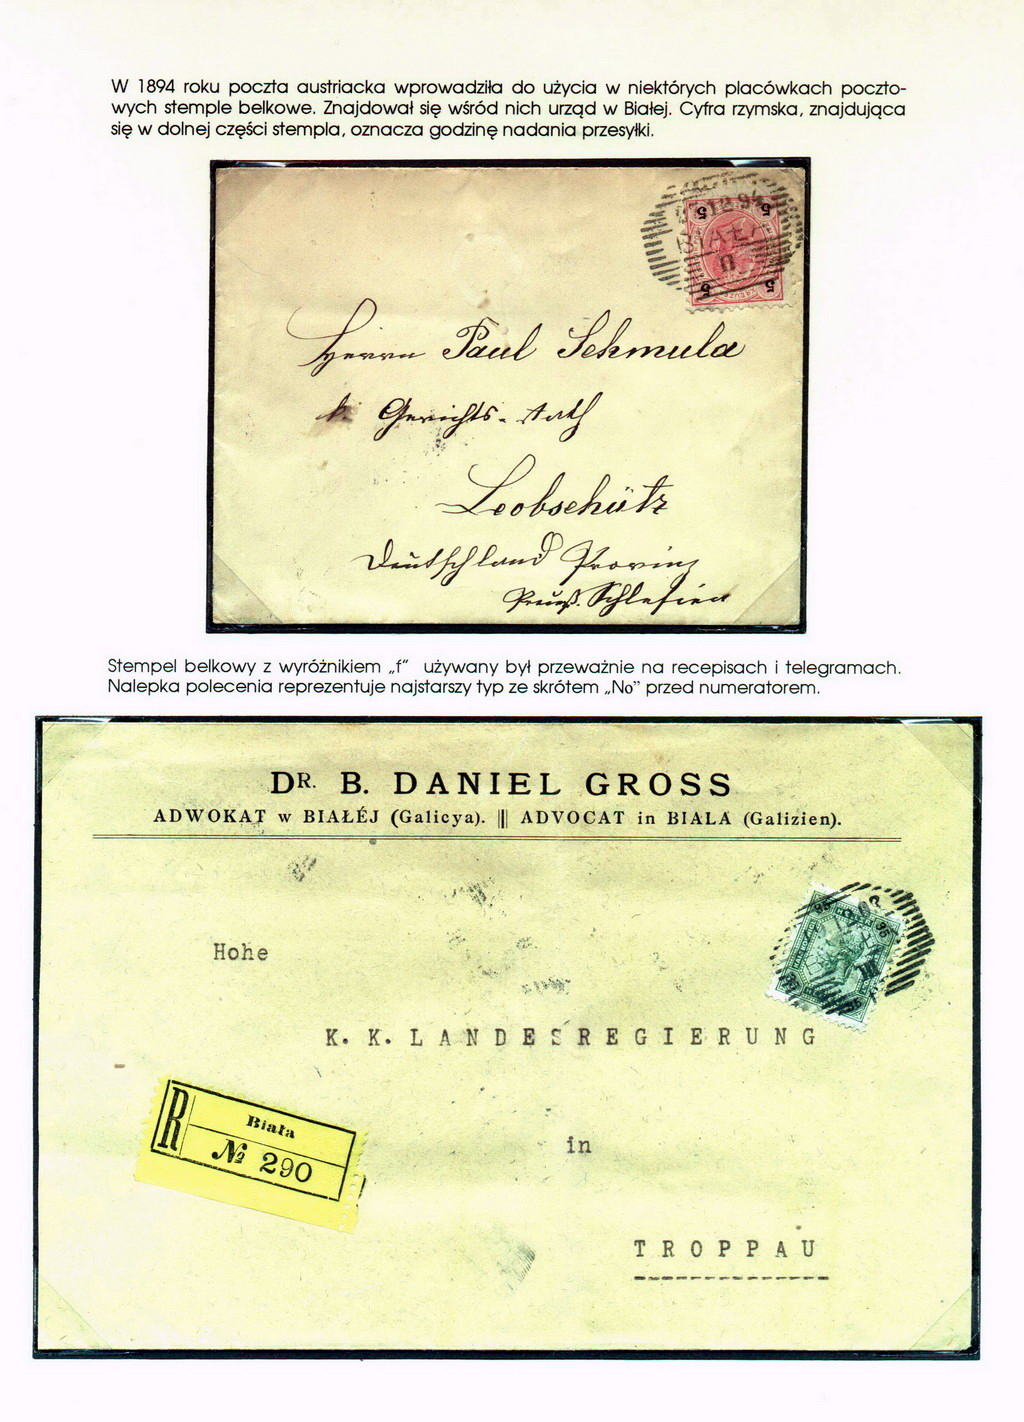 W 1894 roku poczta austriacka wprowadziła do użycia w niektórych placówkach poczto-
wych stemple belkowe. Znajdował się wśród nich urząd w Białej. Cyfra rzymska, znajdująca
się w dolnej części stempla, oznacza godzinę nadania przesyłki.
5 5
12 94
BIAŁA
II
5 5
Herrn Paul Schmula
k. Gerichts-Rath
Leobschütz
Deutschland Provinz
Preuß. Schlesien
Stempel belkowy z wyróżnikiem „f” używany był przeważnie na recepisach i telegramach.
Nalepka polecenia reprezentuje najstarszy typ ze skrótem „No” przed numeratorem.
DR. B. DANIEL GROSS
ADWOKAT w BIAŁÉJ (Galicya). ||| ADVOCAT in BIALA (Galizien).
35 35
III
35 35
Hohe
K. K. LANDESREGIERUNG
R
Biała
№ 290
in
TROPPAU